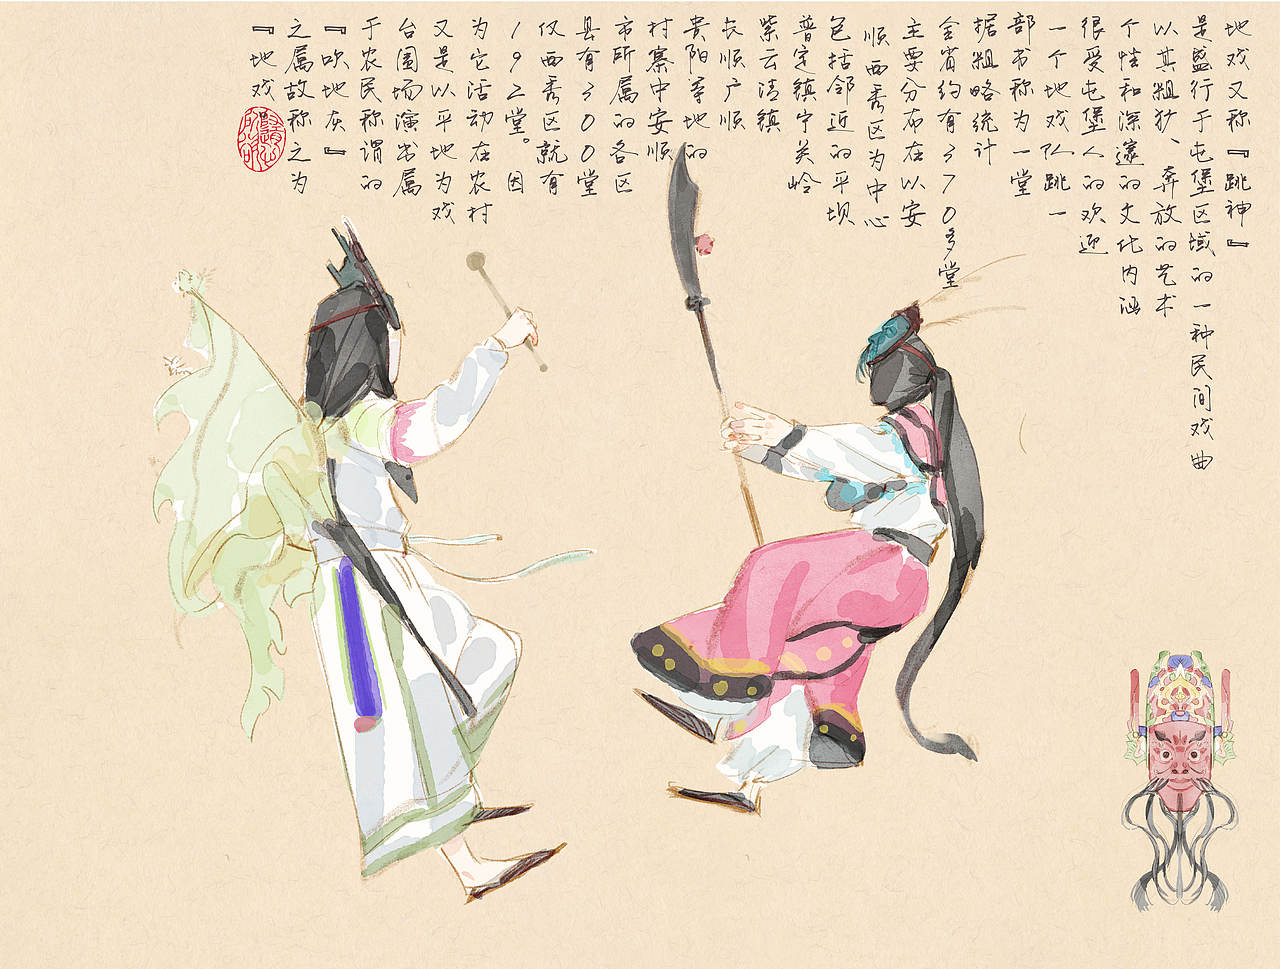 地戏又称『跳神』
是盛行于屯堡区域的一种民间戏曲
以其粗犷、奔放的艺术
个性和深邃的文化内涵
很受屯堡人的欢迎
一个地戏队跳一
部书称为一堂
据粗略统计
全省约有370多堂
主要分布在以安
顺西秀区为中心
包括邻近的平坝
普定镇宁关岭
紫云清镇
长顺广顺
贵阳等地的
村寨中安顺
市所属的各区
县有300堂
仅西秀区就有
192堂。因
为它活动在农村
又是以平地为戏
台围场演出属
于农民称谓的
『吹地灰』
之属故称之为
『地戏』